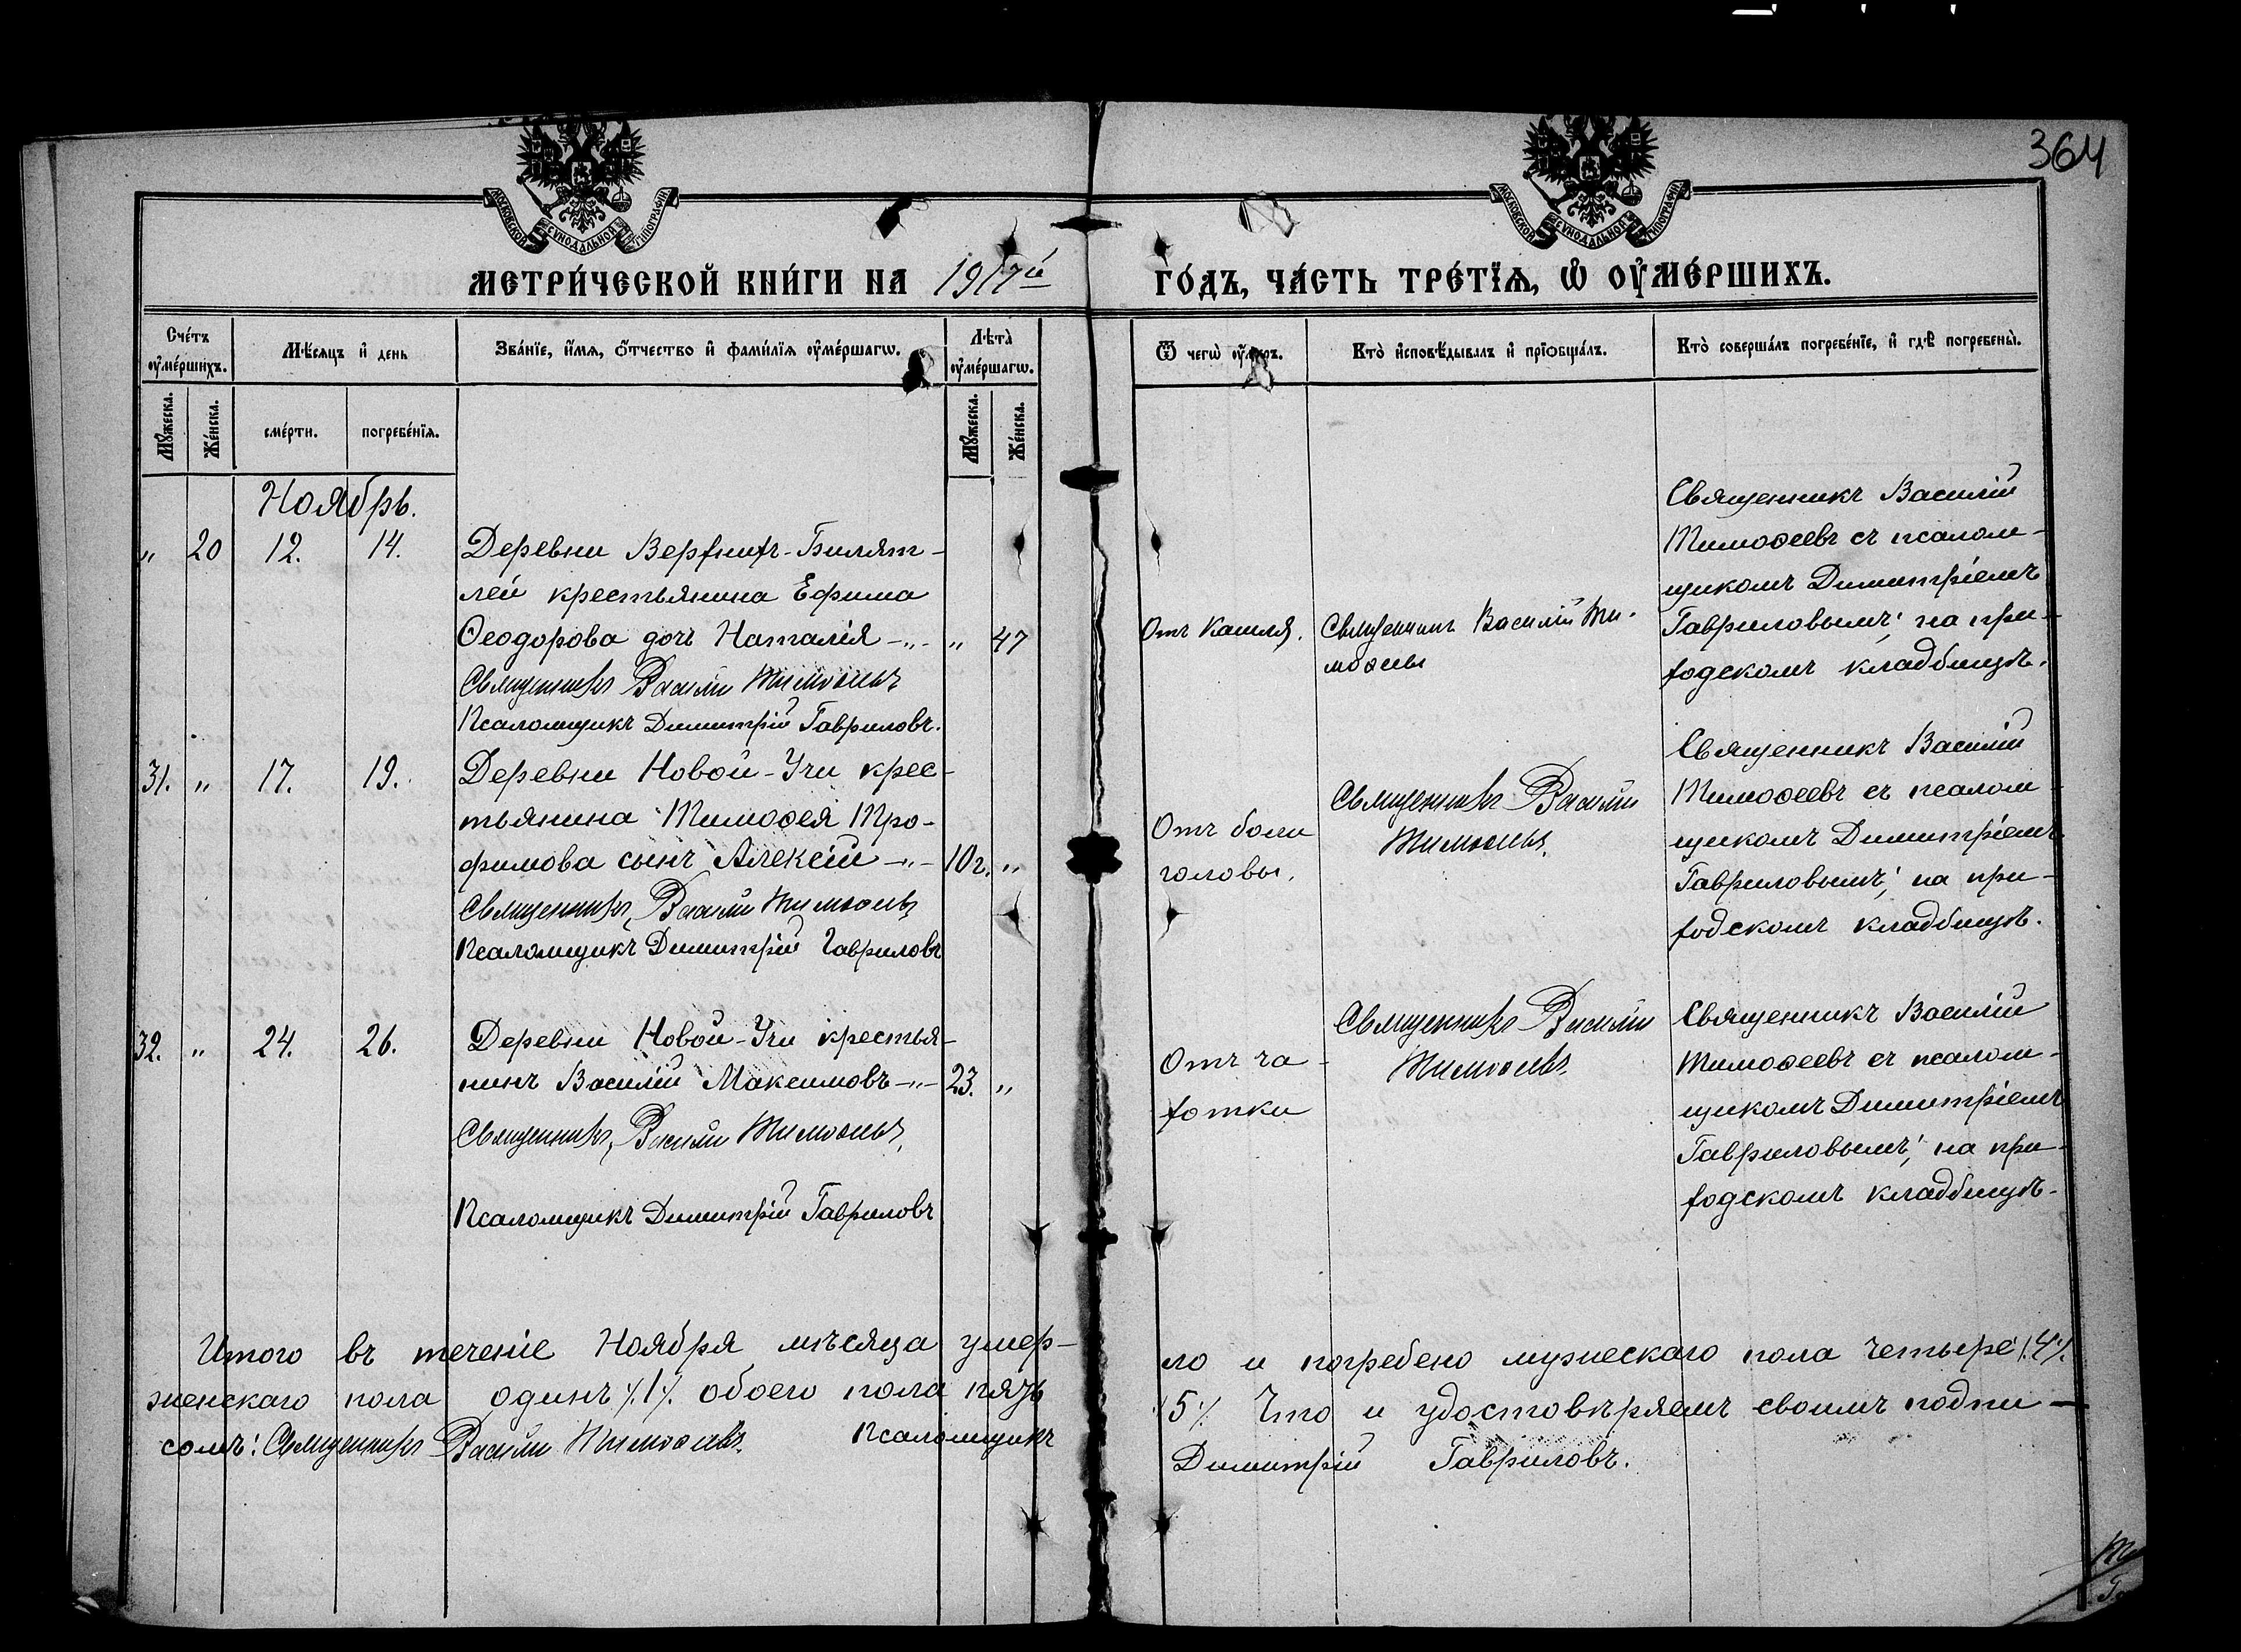 364
МОСКОВСКОЙ СѴНОДАЛЬНОЙ ТИПОГРАФІИ
МОСКОВСКОЙ СѴНОДАЛЬНОЙ ТИПОГРАФІИ
МЕТРИ́ЧЕСКОЙ КНИ́ГИ НА 1917й
ГО́ДЪ, ЧА́СТЬ ТРЕ́ТЇѦ, Ѡ҆ ОУ҆МЕ́РШИХЪ.
Сче́тъ оу҆ме́ршихъ.
Мѣ́сяцъ и҆ день
Зва́нїе, и҆́мѧ, ѻ҆́тчество и҆ фами́лїѧ оу҆ме́ршагѡ.
Лѣта̀ оу҆ме́ршагѡ.
Ѿ чегѡ̀ оу҆́меръ.
Кто̀ и҆сповѣ́дывалъ и҆ прїѻбща́лъ.
Кто̀ соверша́лъ погребе́нїе, и҆ гдѣ̀ погребены̀.
Мꙋ́жеска.
Же́нска.
сме́рти.
погребе́нїѧ.
Мꙋ́жеска.
Же́нска.
Ноябрь.
„ 20 12. 14. Деревни Верхнихъ-Билят-
лей крестьянина Ефима
Ѳеодорова дочь Наталія -„- „ 47
Священникъ Василій Тимоѳеевъ
Псаломщикъ Димитрій Гавриловъ.
Отъ кашля.
Священникъ Василій Ти-
моѳеевъ
Священникъ Василій
Тимоѳеевъ съ псалом-
щикомъ Димитріемъ
Гавриловымъ; на при-
ходскомъ кладбищѣ.
31. „ 17. 19. Деревни Новой-Учи крес-
тьянина Тимоѳея Тро-
фимова сынъ Алексій -„- 10г. „
Священникъ Василій Тимоѳеевъ
Псаломщикъ Димитрій Гавриловъ
Отъ боли
головы.
Священникъ Василій
Тимоѳеевъ.
Священникъ Василій
Тимоѳеевъ съ псалом
щикомъ Димитріемъ
Гавриловымъ; на при-
ходскомъ кладбищѣ.
32. „ 24. 26. Деревни Новой-Учи крестья-
нинъ Василій Максимовъ -„- 23. „
Священникъ Василій Тимоѳеевъ
Псаломщикъ Димитрій Гавриловъ
Отъ ча-
хотки
Священникъ Василій
Тимоѳеевъ
Священникъ Василій
Тимоѳеевъ съ псалом-
щикомъ Димитріемъ
Гавриловымъ; на при-
ходскомъ кладбищѣ.
Итого въ теченіе Ноября мѣсяца умер-
ло и погребено мужескаго пола четыре /.4/.
женскаго пола одинъ /.1/. обоего пола пять
/5/. Что и удостовѣряемъ своимъ подпи-
сомъ: Священникъ Василій Тимоѳеевъ. Псаломщикъ
Димитрій Гавриловъ.